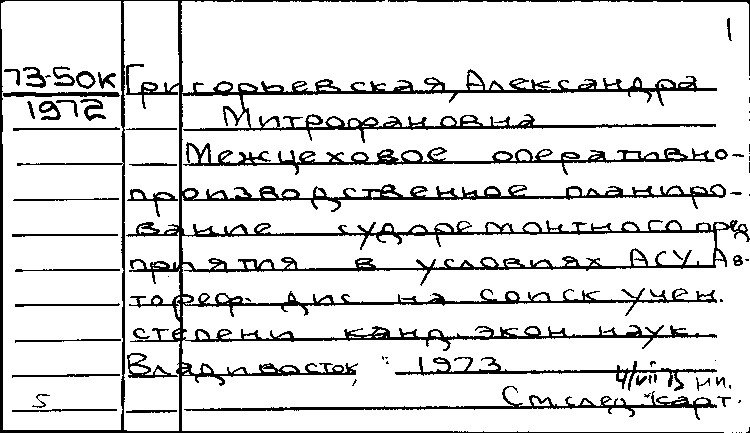 1
73-50к Григорьевская, Александра
1972 Митрофановна
Межцеховое оперативно-
производственное планиро-
вание судоремонтного пред
приятия в условиях АСУ. Ав-
тореф. дис на соиск учен.
степени канд. экон. наук.
Владивосток, 1973
4/VII 73
5 См след карт.